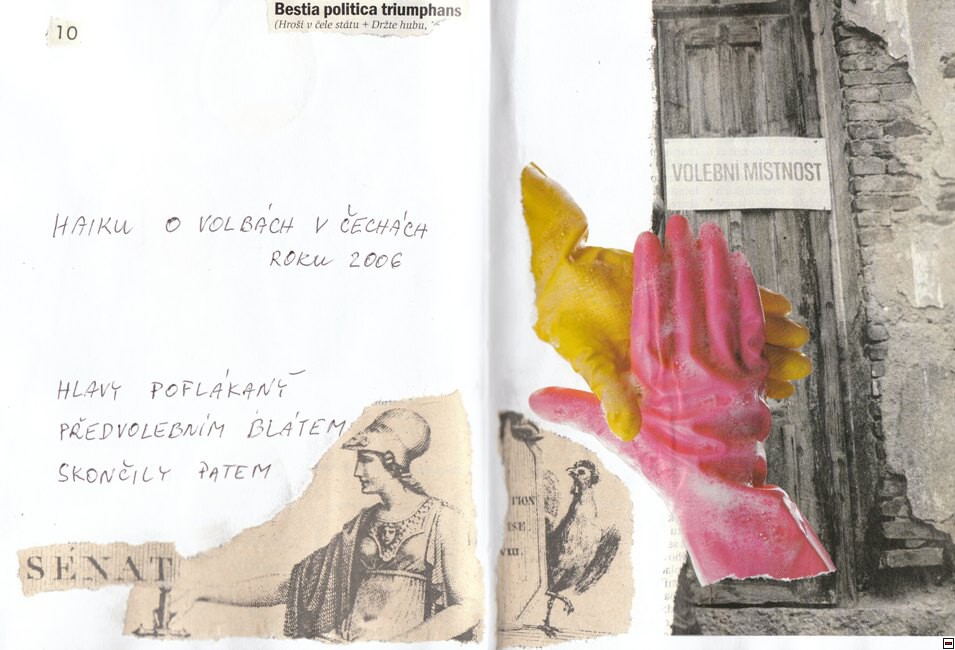 10
Bestia politica triumphans
(Hroši v čele státu + Držte hubu,
VOLEBNÍ MÍSTNOST
HAIKU O VOLBÁCH V ČECHÁCH
ROKU 2006
HLAVY POFLÁKANÝ
PŘEDVOLEBNÍM BLÁTEM
SKONČILY PATEM
SÉNAT
TION
ISE
VIII.